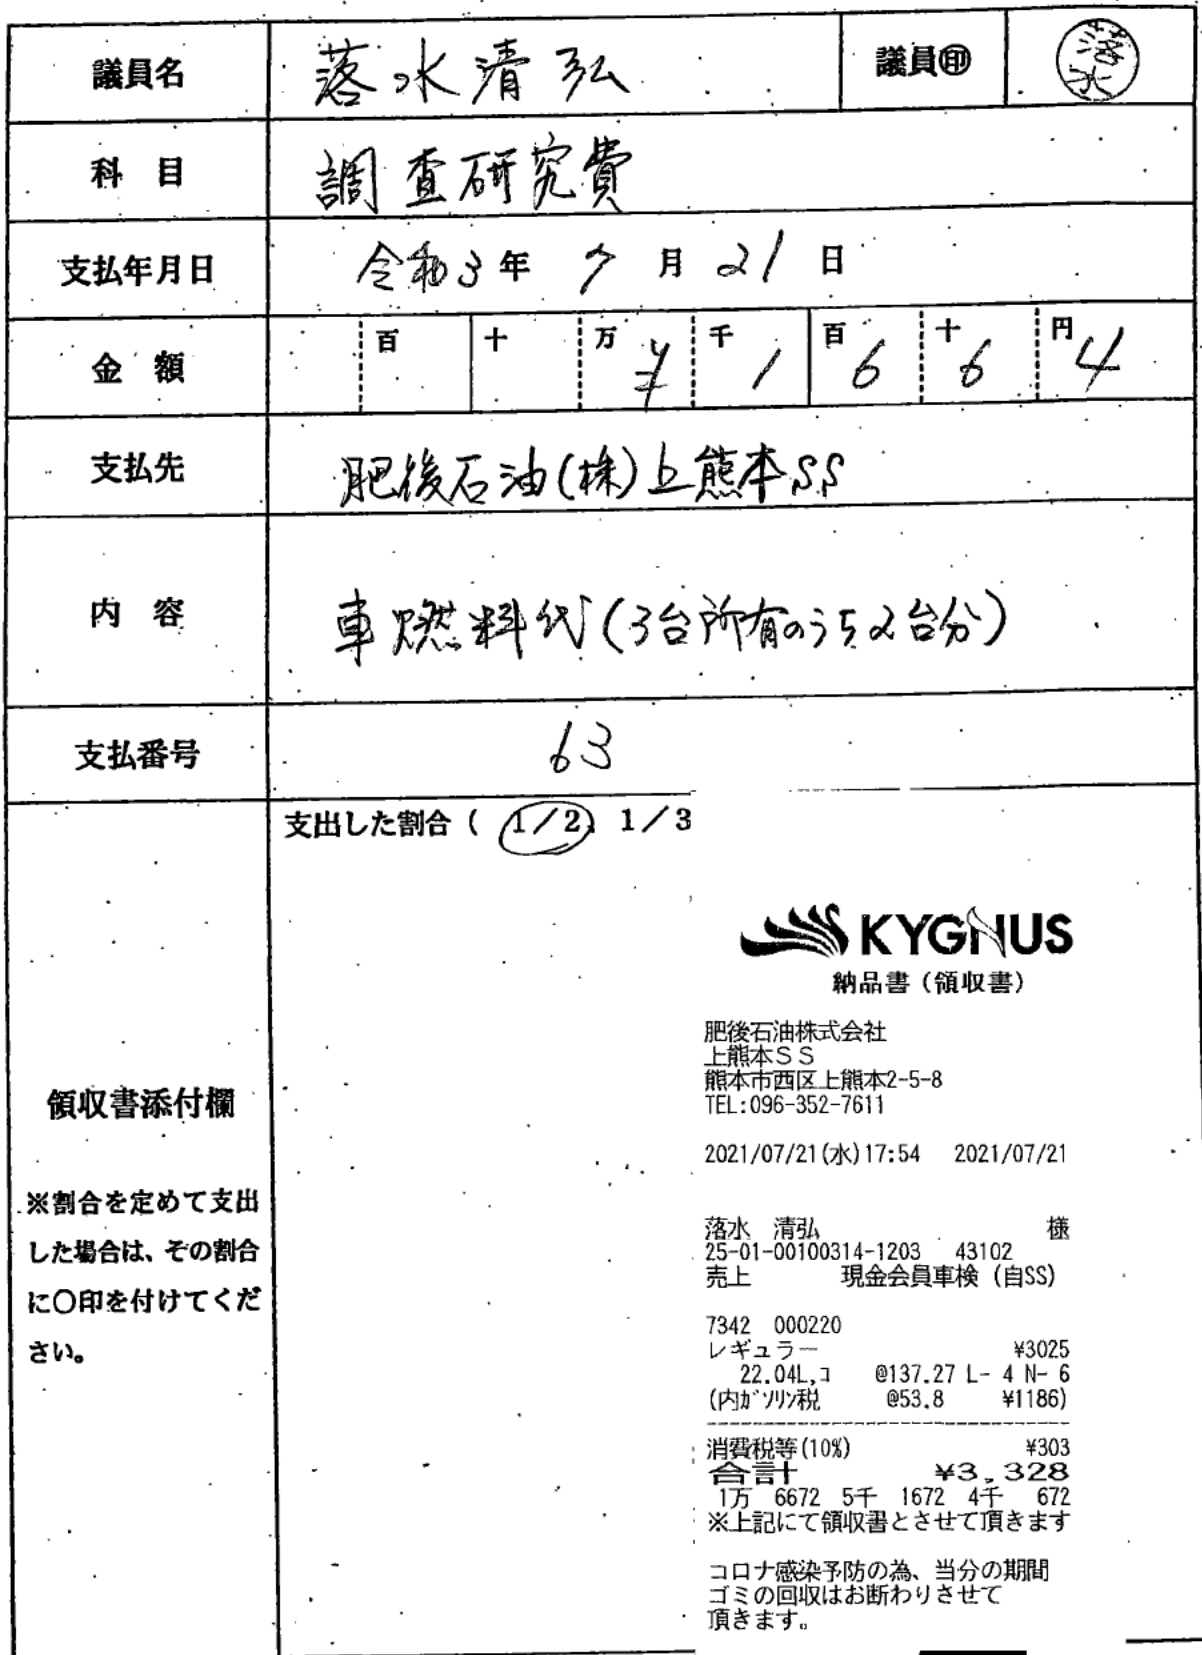 議員名 落水清弘 議員㊞ 落水
科 目 調査研究費
支払年月日 令和3年 7月21日
金 額 百 十 万 ¥ 千 1 百 6 十 6 円 4
支払先 肥後石油(株)上熊本SS
内 容 車燃料代(3台所有のうち2台分)
支払番号 63
支出した割合( 1/2) 1/3
領収書添付欄
※割合を定めて支出
した場合は、その割合
に〇印を付けてくだ
さい。
KYGNUS
納品書(領収書)
肥後石油株式会社
上熊本SS
熊本市西区上熊本2-5-8
TEL:096-352-7611
2021/07/21(水)17:54 2021/07/21
落水 清弘 様
25-01-00100314-1203 43102
売上 現金会員車検(自SS)
7342 000220
レギュラー ¥3025
22.04L,コ @137.27 L- 4 N- 6
(内ガソリン税 @53.8 ¥1186)
消費税等(10%) ¥303
合計 ¥3,328
1万 6672 5千 1672 4千 672
※上記にて領収書とさせて頂きます
コロナ感染予防の為、当分の期間
ゴミの回収はお断わりさせて
頂きます。